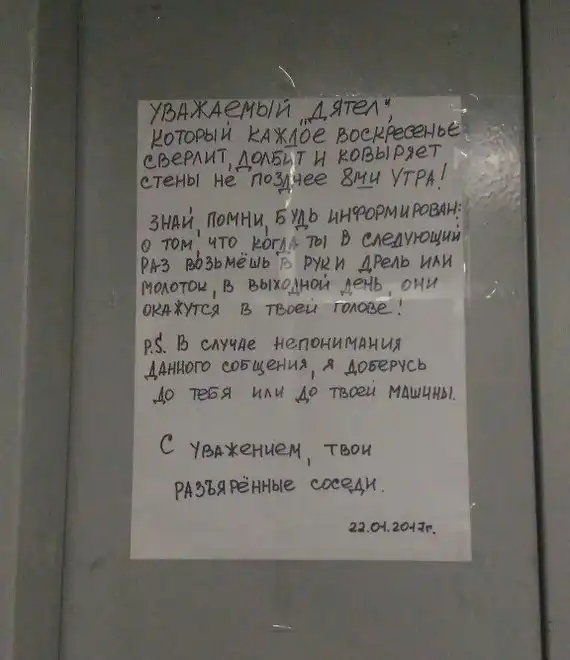 УВАЖАЕМЫЙ „ДЯТЕЛ",
КОТОРЫЙ КАЖДОЕ ВОСКРЕСЕНЬЕ
СВЕРЛИТ, ДОЛБИТ И КОВЫРЯЕТ
СТЕНЫ НЕ ПОЗДНЕЕ 8МИ УТРА!
ЗНАЙ, ПОМНИ, БУДЬ ИНФОРМИРОВАН:
О ТОМ, ЧТО КОГДА ТЫ В СЛЕДУЮЩИЙ
РАЗ ВОЗЬМЁШЬ В РУКИ ДРЕЛЬ ИЛИ
МОЛОТОК, В ВЫХОДНОЙ ДЕНЬ, ОНИ
ОКАЖУТСЯ В ТВОЕЙ ГОЛОВЕ!
P.S. В СЛУЧАЕ НЕПОНИМАНИЯ
ДАННОГО СОБЩЕНИЯ, Я ДОБЕРУСЬ
ДО ТЕБЯ ИЛИ ДО ТВОЕЙ МАШИНЫ.
С УВАЖЕНИЕМ, ТВОИ
РАЗЪЯРЁННЫЕ СОСЕДИ.
22.01.2017г.